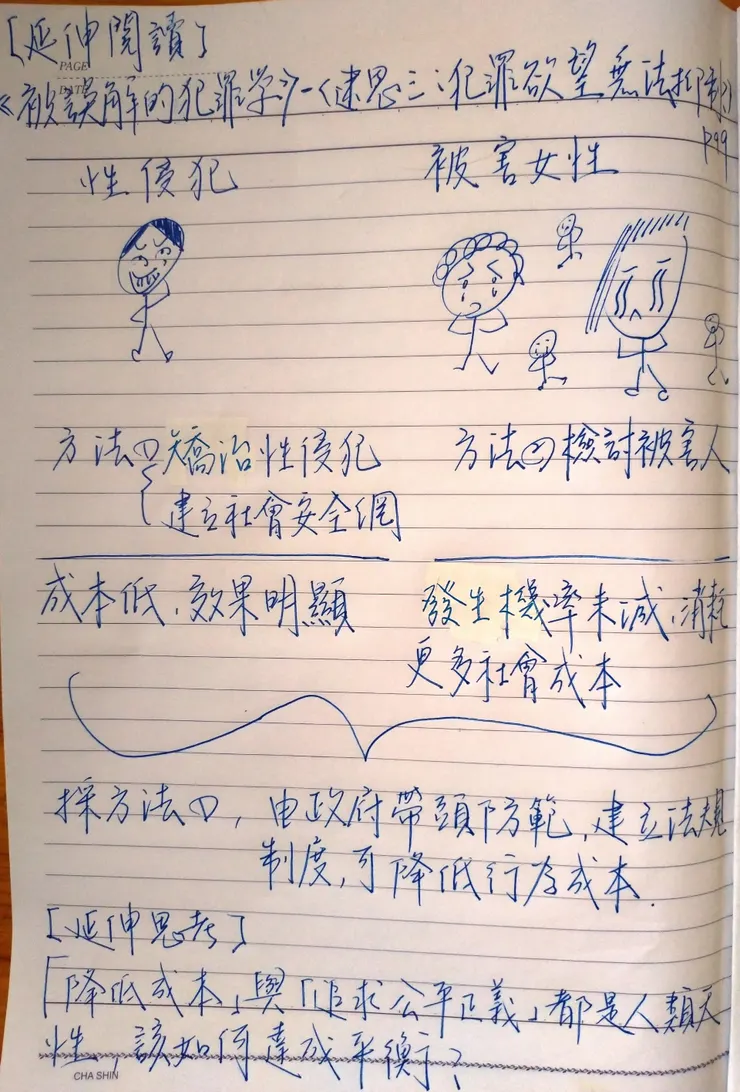 [延伸閱讀]
PAGE
DATE
《被誤解的犯罪學》-〈迷思三:犯罪欲望無法抑制〉
P99
性侵犯
被害女性
方法① 矯治性侵犯
建立社會安全網
方法② 檢討被害人
成本低、效果明顯
發生機率未減,消耗
更多社會成本
採方法①,由政府帶頭防範,建立法規
制度,可降低行為成本.
[延伸思考]
「降低成本」與「追求公平正義」都是人類天
性,該如何達成平衡?
CHA SHIN